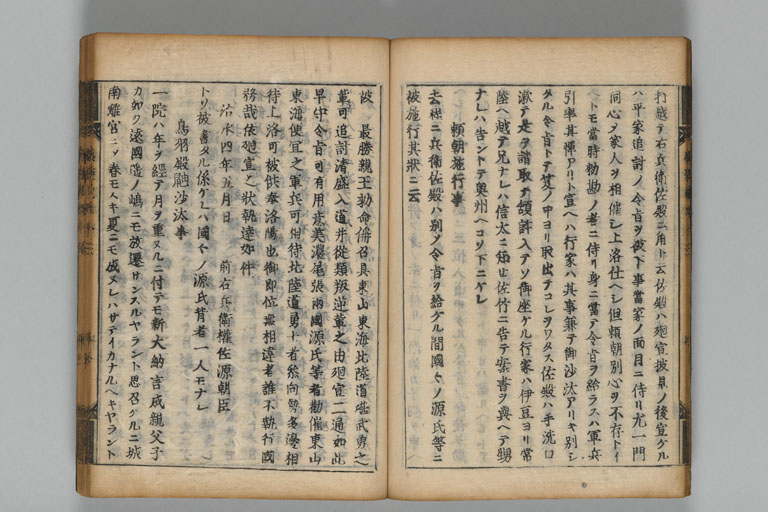 打越テ右兵衛佐殿ニ角ト云佐殿ハ廻宣披見ノ後宣ケル
ハ平家追討ノ令旨ヲ被下事當家ノ面目ニ侍リ尤一門
同心ヲ家人ヲ相催シ上洛仕ヘシ但頼朝別心ヲ不存トイ
ヘトモ當時勅勘ノ者ニ侍リ身ニ當テ令旨ヲ給ラスハ軍兵
引率其憚アリト宣ヘハ行家ハ其事兼テ御沙汰アリキ別シ
タル令旨トテ笈ノ中ヨリ取出テコレヲワタス佐殿ハ手洗口
漱テ是ヲ請取テ頷許入テソ御座ケル行家ハ伊豆ヨリ常
陸ヘ越テ兄ナレハ信太ニ知セ佐竹ニ告テ案書ヲ與ヘテ甥
ナレハ告ントテ奥州ヘコソ下ニケレ
頼朝施行事
去程ニ兵衛佐殿ハ別ノ令旨ヲ給ケル間國々ノ源氏等ニ
被施行其狀ニ云
被 最勝親王勅命偁召具東山東海北陸道堪武勇之
輩可追討清盛入道并從類叛逆輩之由廻宣一通如此
早守令旨可有用意美濃尾張兩國源氏等者勸催東山
東海便宜之軍兵可相待北陸道勇士者參向勢多邊相
待上洛可被供奉洛陽也御即位無相違者誰不執行國
務哉依廻宣之狀執達如件
治承四年五月日 前右兵衛權佐源朝臣
トソ被書タル係ケレハ國々ノ源氏背者一人モナレ
鳥羽殿鼬沙汰事
一院ハ年ヲ經テ月ヲ重ヌルニ付テモ新大納言成親父子
カ如ク遠國隱ノ嶋ニモ放遷サンスルヤラント思召ケルニ城
南離宮ニ〆春モスキ夏ニモ成ヌレハサテイカナルヘキヤラント